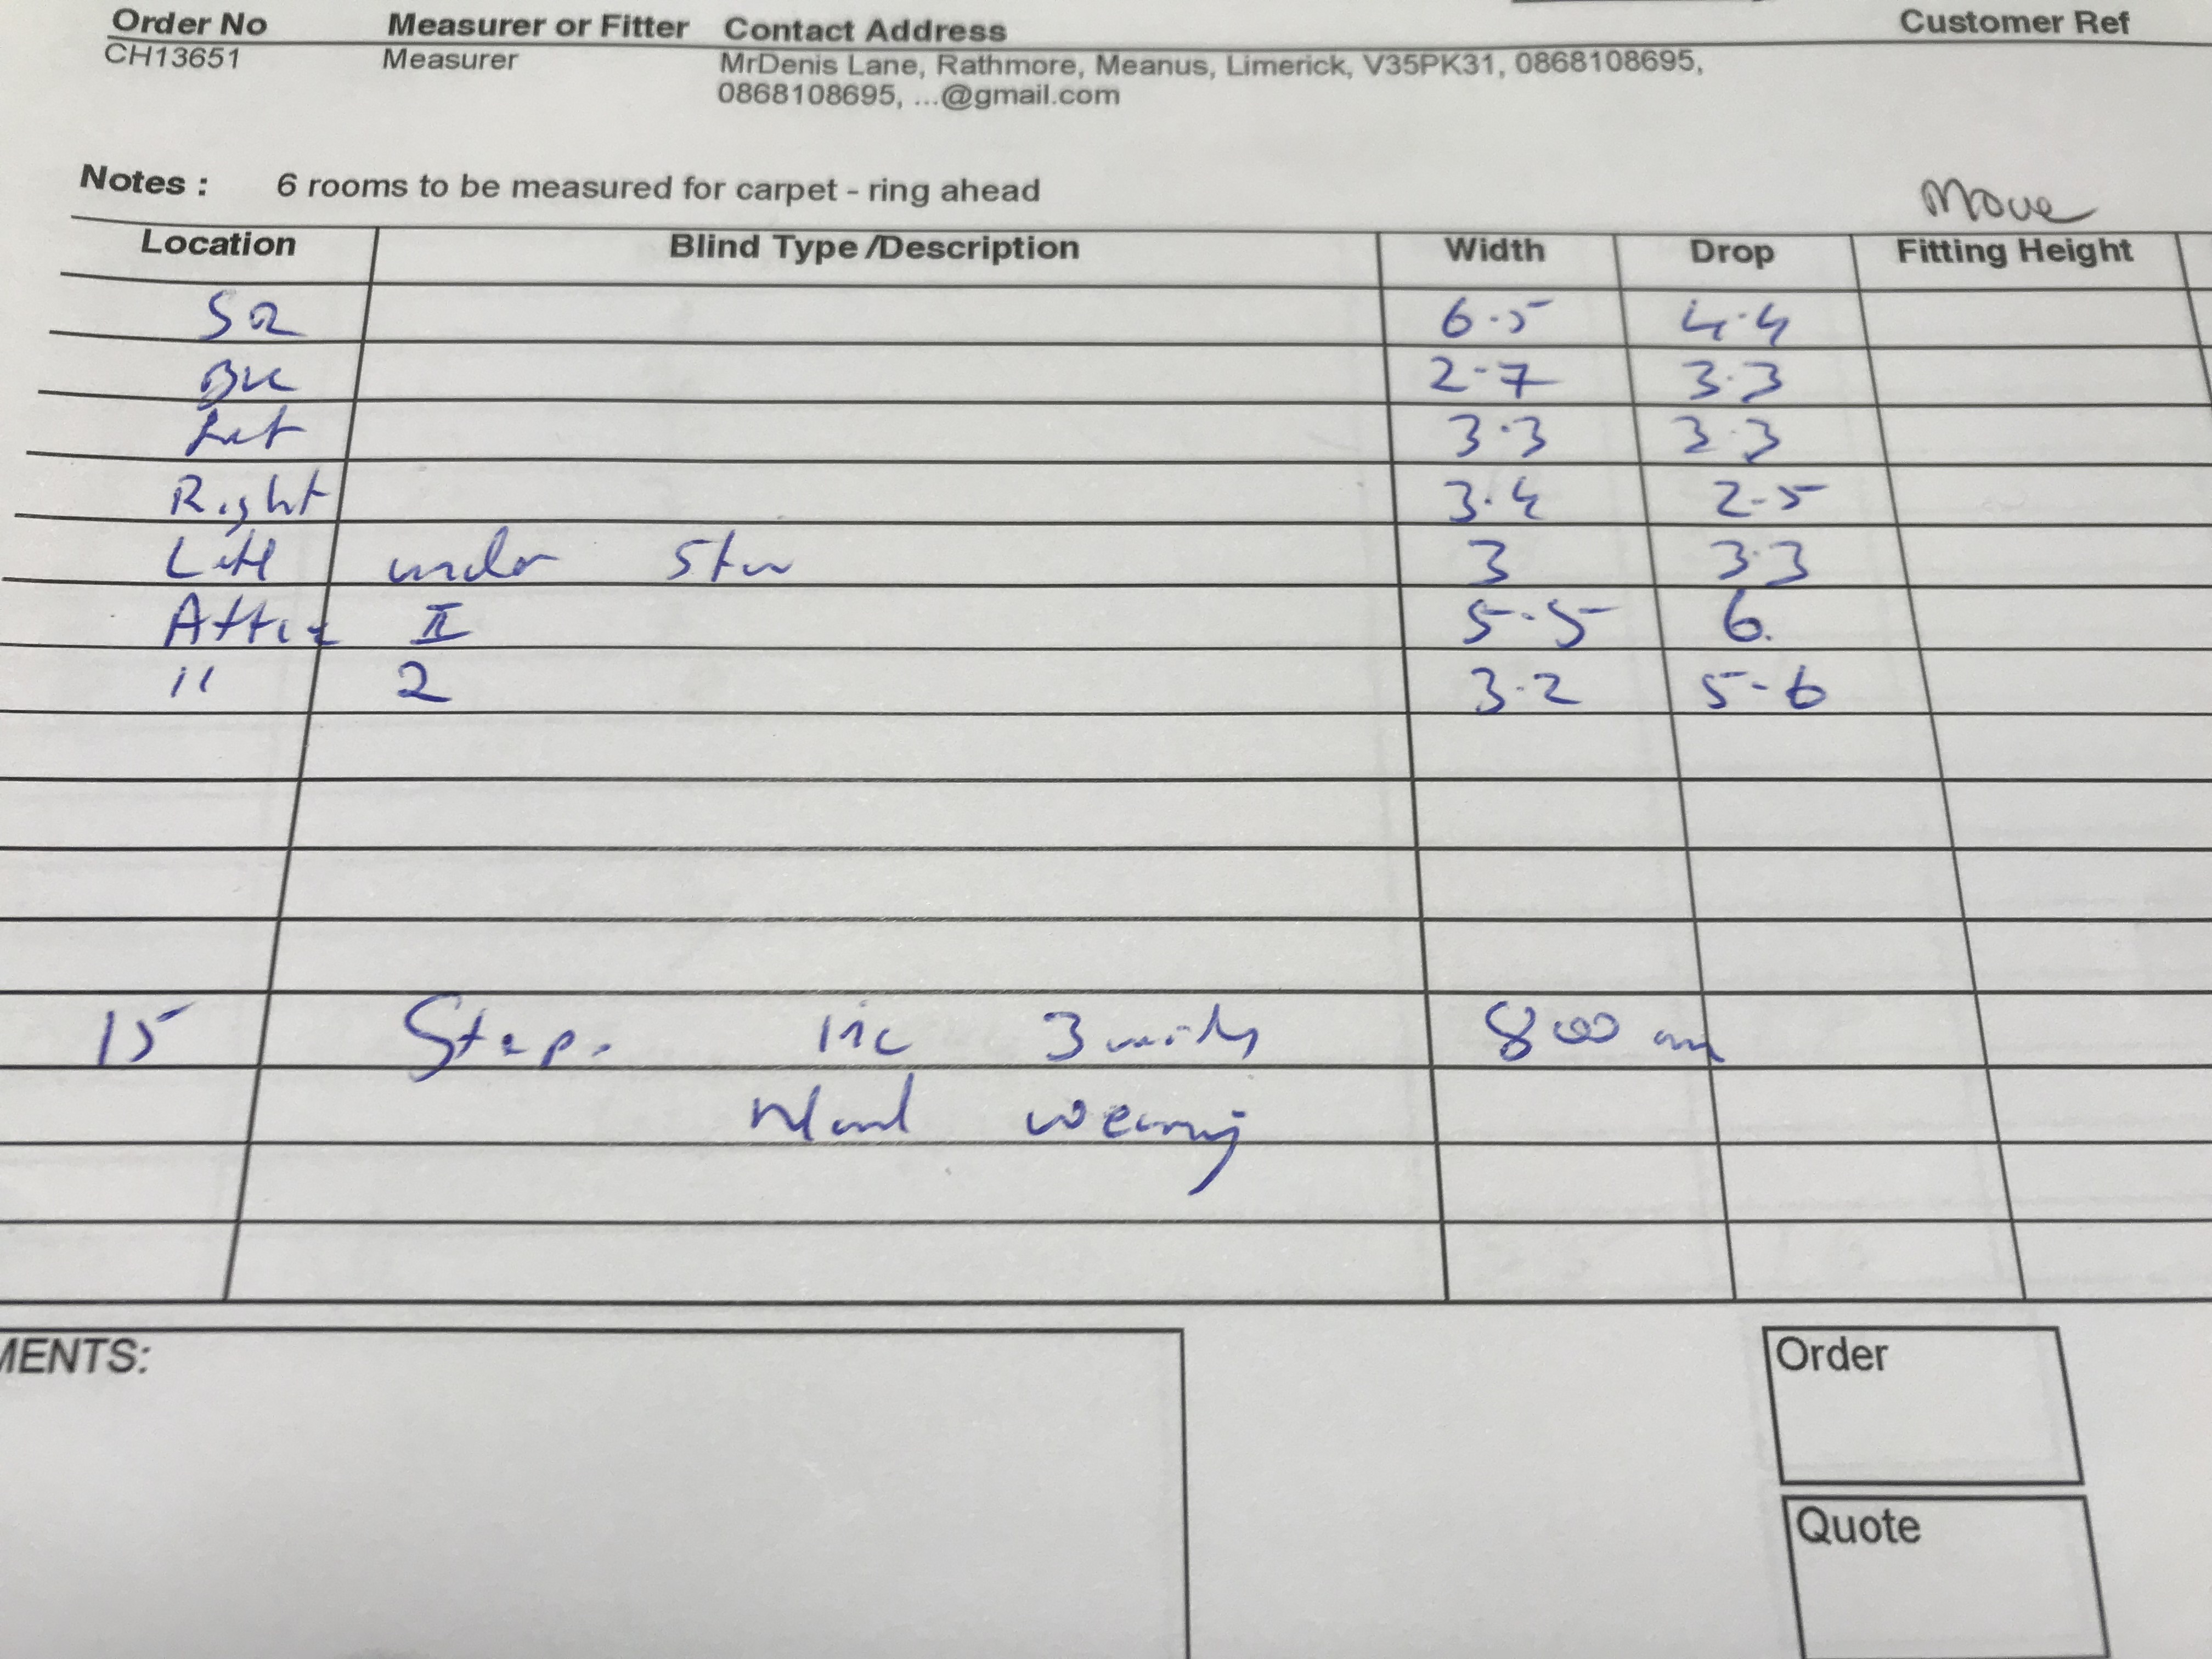 Order No Measurer or Fitter Contact Address Customer Ref
CH13651 Measurer MrDenis Lane, Rathmore, Meanus, Limerick, V35PK31, 0868108695,
0868108695, ...@gmail.com
Notes : 6 rooms to be measured for carpet - ring ahead
Move
Location Blind Type /Description Width Drop Fitting Height
6.5 4.4
2-7 3.3
3.3 3.3
Right 3.4 2-5
under 3 3.3
Attic 5-5 6.
" 2 3.2 5-6
15 Steps 3 800
wearing
MENTS:
Order
Quote